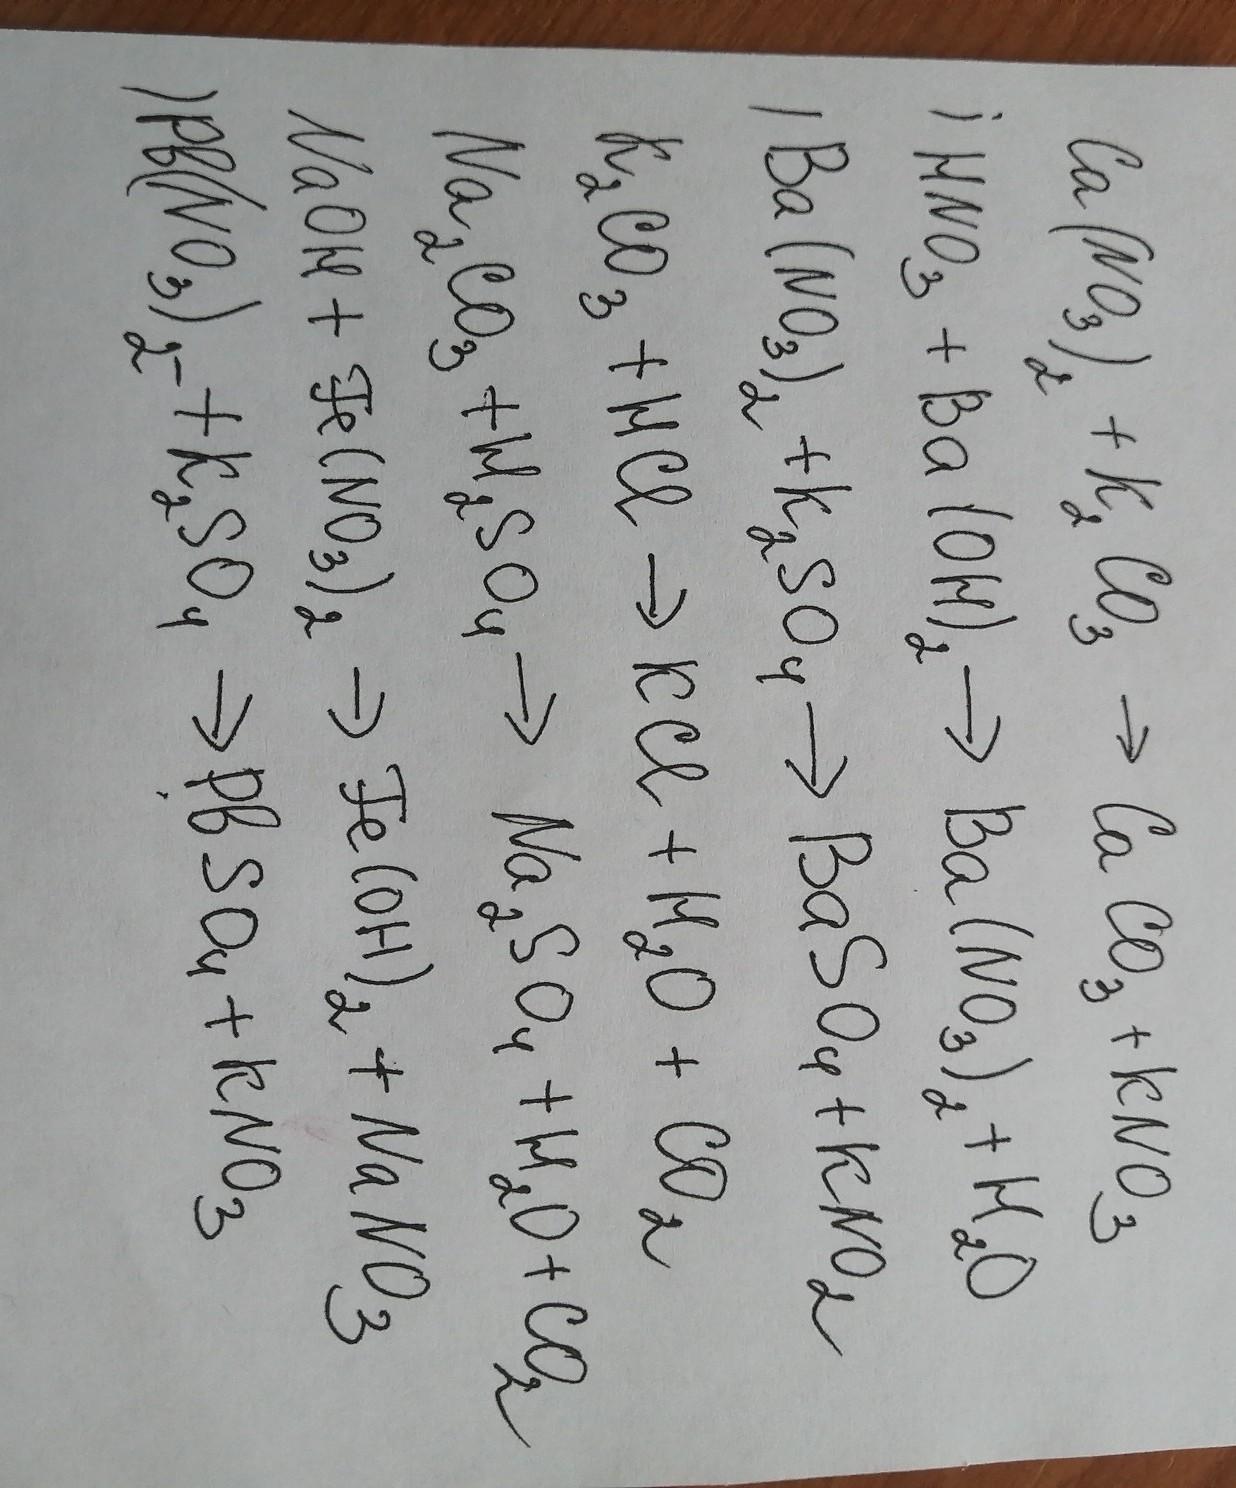 Ca(NO₃)₂ + K₂CO₃ → CaCO₃ + KNO₃
) HNO₃ + Ba(OH)₂ → Ba(NO₃)₂ + H₂O
) Ba(NO₃)₂ + K₂SO₄ → BaSO₄ + KNO₂
K₂CO₃ + HCl → KCl + H₂O + CO₂
Na₂CO₃ + H₂SO₄ → Na₂SO₄ + H₂O + CO₂
NaOH + Fe(NO₃)₂ → Fe(OH)₂ + NaNO₃
) Pb(NO₃)₂ + K₂SO₄ → PbSO₄ + KNO₃